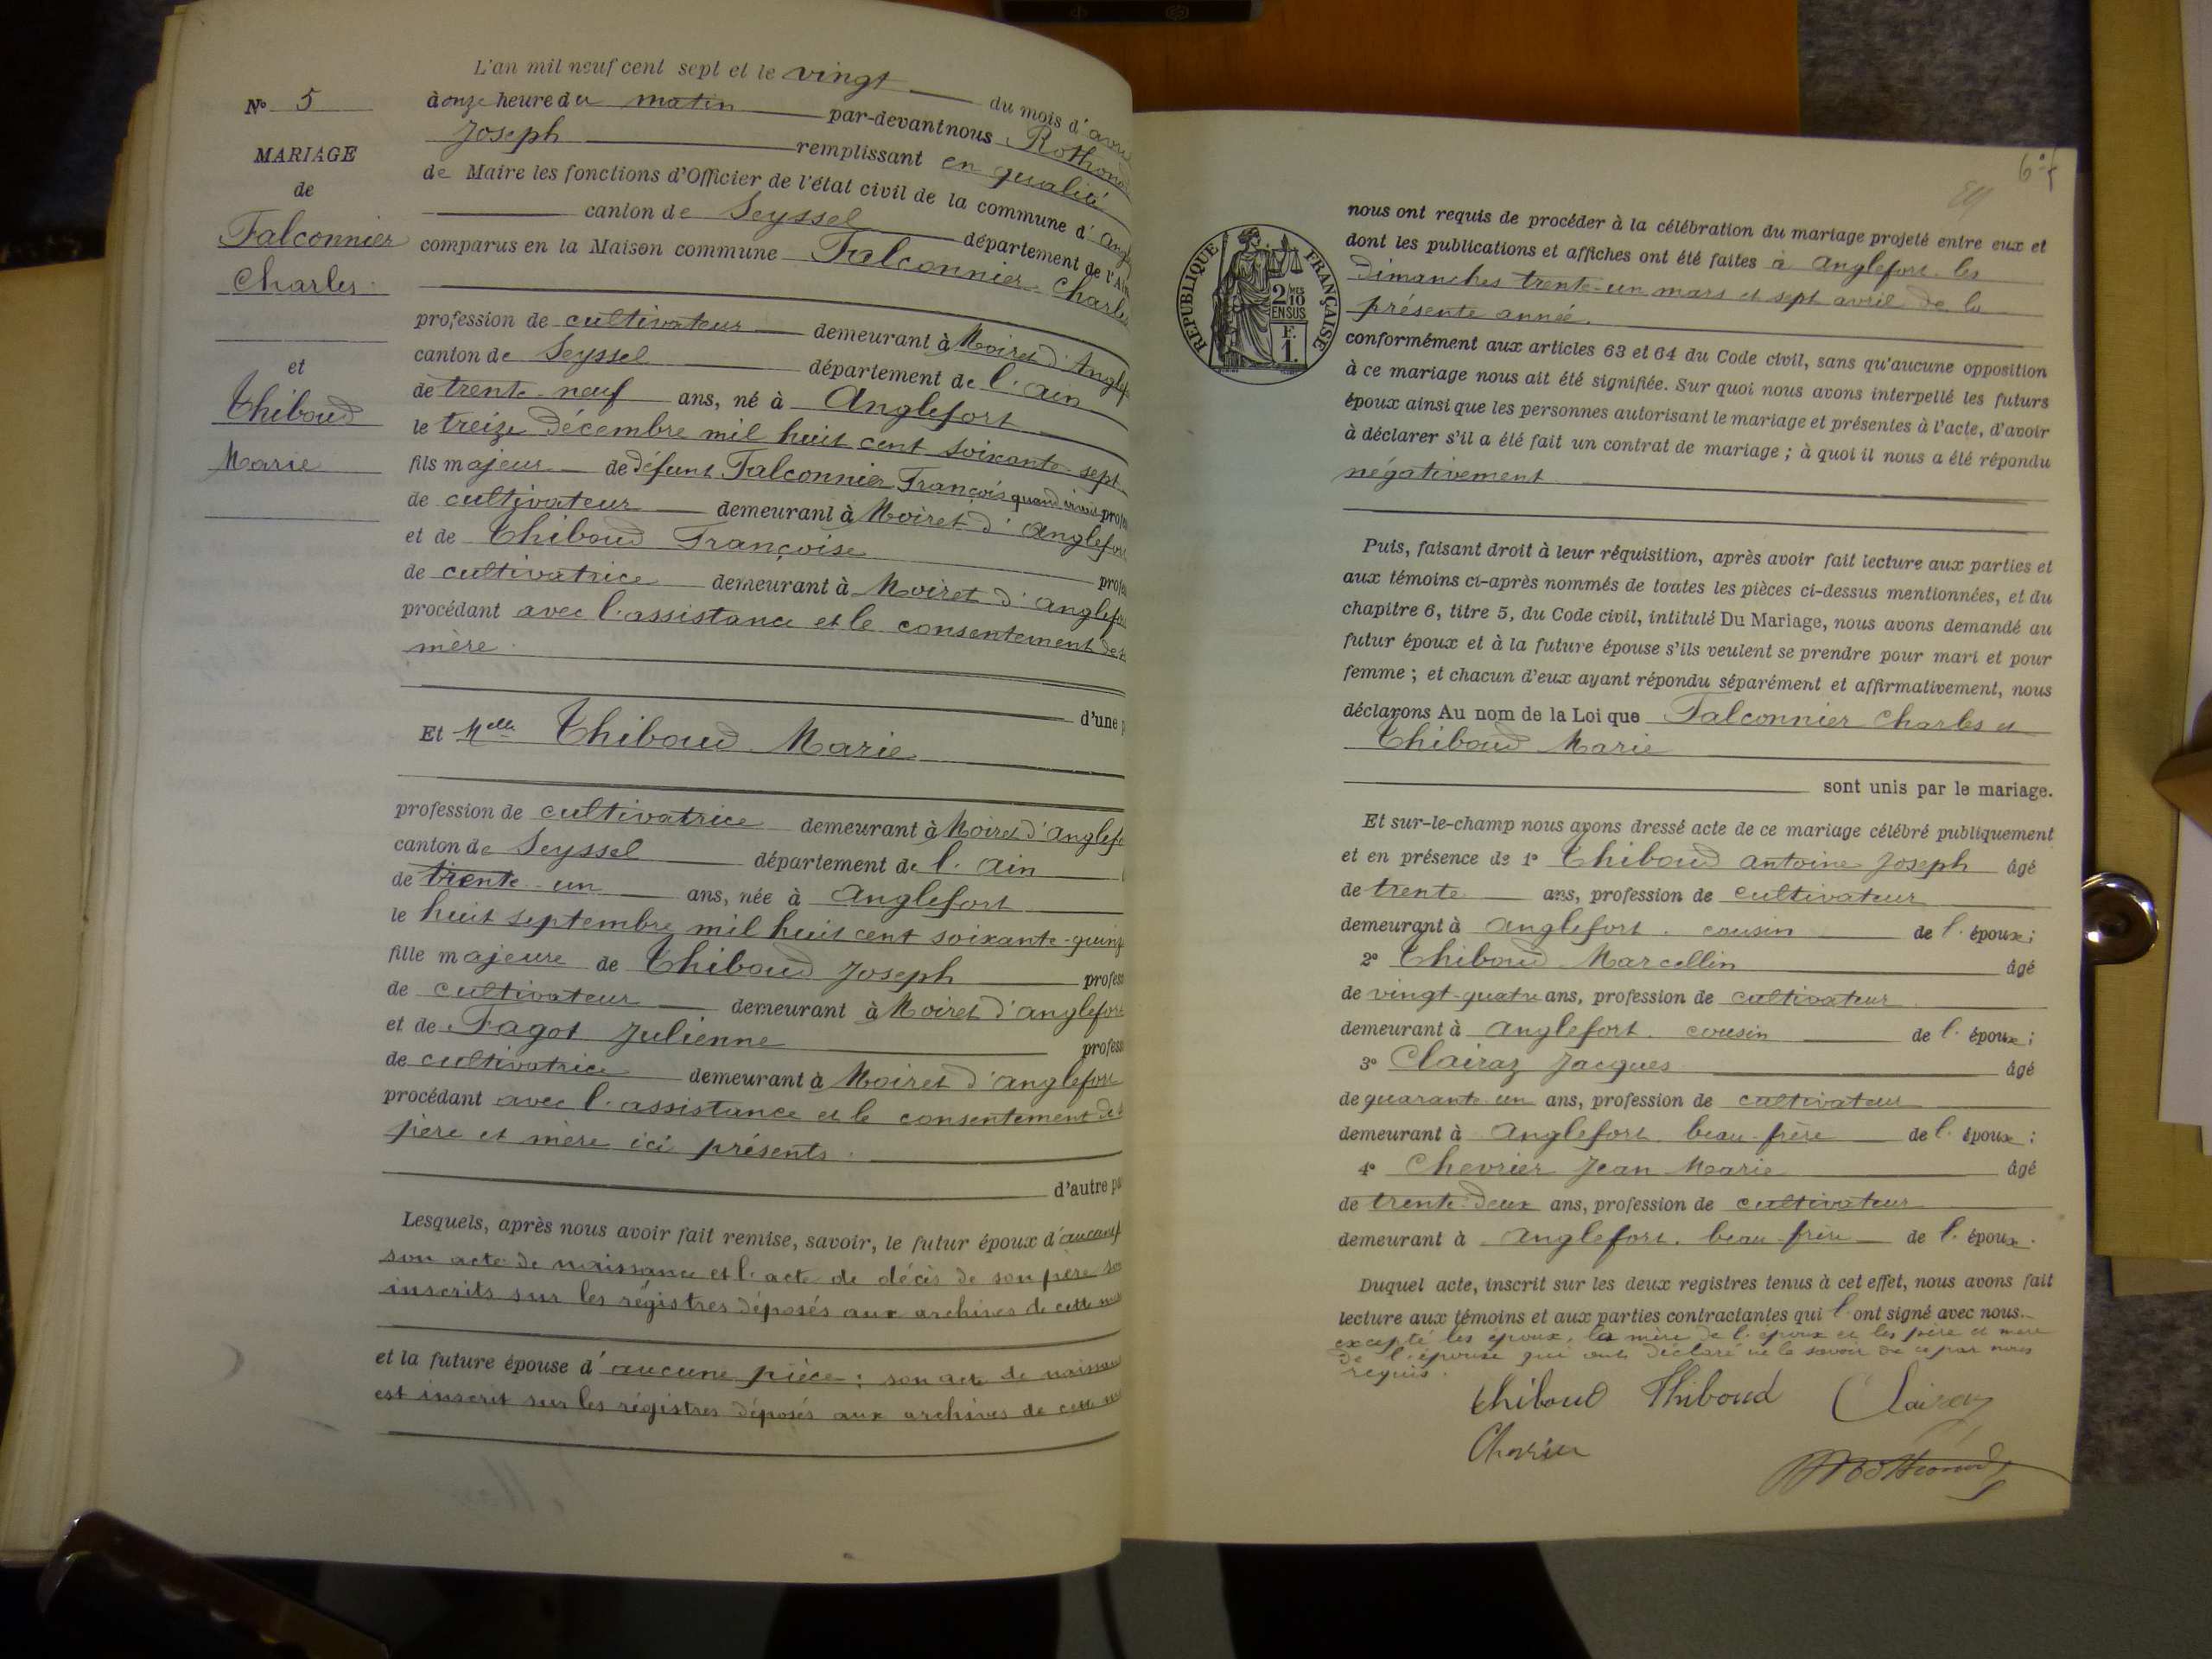 L'an mil neuf cent sept et le vingt du mois d'avril
N° 5
à onze heure du matin par-devant nous Rothonod
Joseph remplissant en qualité
MARIAGE
de Maire les fonctions d'Officier de l'état civil de la commune d'Angl
de
canton de Seyssel département de l'Ain
Falconnier
comparus en la Maison commune Falconnier Charles
Charles
profession de cultivateur demeurant à Moiret d'Anglef
et
canton de Seyssel département de l'Ain
Thiboud
de trente-neuf ans, né à Anglefort
le treize décembre mil huit cent soixante-sept
Marie
fils majeur de défunt Falconnier François quand vivait profes
de cultivateur demeurant à Moiret d'Anglefort
et de Thiboud Françoise profes
de cultivatrice demeurant à Moiret d'Anglefo
procédant avec l'assistance et le consentement de s
mère
d'une p
Et Melle Thiboud Marie
profession de cultivatrice demeurant à Moiret d'Anglefo
canton de Seyssel département de l'Ain
de trente-un ans, née à Anglefort
le huit septembre mil huit cent soixante-quinz
fille majeure de Thiboud Joseph profess
de cultivateur demeurant à Moiret d'anglefort
et de Fagot Julienne profess
de cultivatrice demeurant à Moiret d'anglefort
procédant avec l'assistance et le consentement de s
père et mère ici présents.
d'autre pa
Lesquels, après nous avoir fait remise, savoir, le futur époux d'aucune
son acte de naissance et l'acte de décès de son père so
inscrits sur les régistres déposés aux archives de cette m
et la future épouse d'aucune pièce; son acte de naissan
est inscrit sur les régistres déposés aux archives de cette m
RÉPUBLIQUE FRANÇAISE
2/10
EN SUS
F.
1.
nous ont requis de procéder à la célébration du mariage projeté entre eux et
dont les publications et affiches ont été faites à Anglefort les
dimanches trente-un mars et sept avril de la
présente année.
conformément aux articles 63 et 64 du Code civil, sans qu'aucune opposition
à ce mariage nous ait été signifiée. Sur quoi nous avons interpellé les futurs
époux ainsi que les personnes autorisant le mariage et présentes à l'acte, d'avoir
à déclarer s'il a été fait un contrat de mariage ; à quoi il nous a été répondu
négativement
Puis, faisant droit à leur réquisition, après avoir fait lecture aux parties et
aux témoins ci-après nommés de toutes les pièces ci-dessus mentionnées, et du
chapitre 6, titre 5, du Code civil, intitulé Du Mariage, nous avons demandé au
futur époux et à la future épouse s'ils veulent se prendre pour mari et pour
femme ; et chacun d'eux ayant répondu séparément et affirmativement, nous
déclarons Au nom de la Loi que Falconnier Charles et
Thiboud Marie
sont unis par le mariage.
Et sur-le-champ nous avons dressé acte de ce mariage célébré publiquement
et en présence de 1° Thiboud Antoine Joseph âgé
de trente ans, profession de cultivateur
demeurant à Anglefort. cousin de l'époux;
2° Thiboud Marcellin âgé
de vingt-quatre ans, profession de cultivateur
demeurant à Anglefort. cousin de l'époux;
3° Clairaz Jacques âgé
de quarante-un ans, profession de cultivateur
demeurant à Anglefort. beau-frère de l'époux;
4° Chevrier Jean Marie âgé
de trente-deux ans, profession de cultivateur
demeurant à Anglefort. beau-frère de l'époux.
Duquel acte, inscrit sur les deux registres tenus à cet effet, nous avons fait
lecture aux témoins et aux parties contractantes qui l'ont signé avec nous.
excepté les époux, la mère de l'époux et les père et mère
de l'épouse qui ont déclaré ne le savoir de ce par nous
requis.
Thiboud Thiboud Clairaz
Chevrier
Rothonod